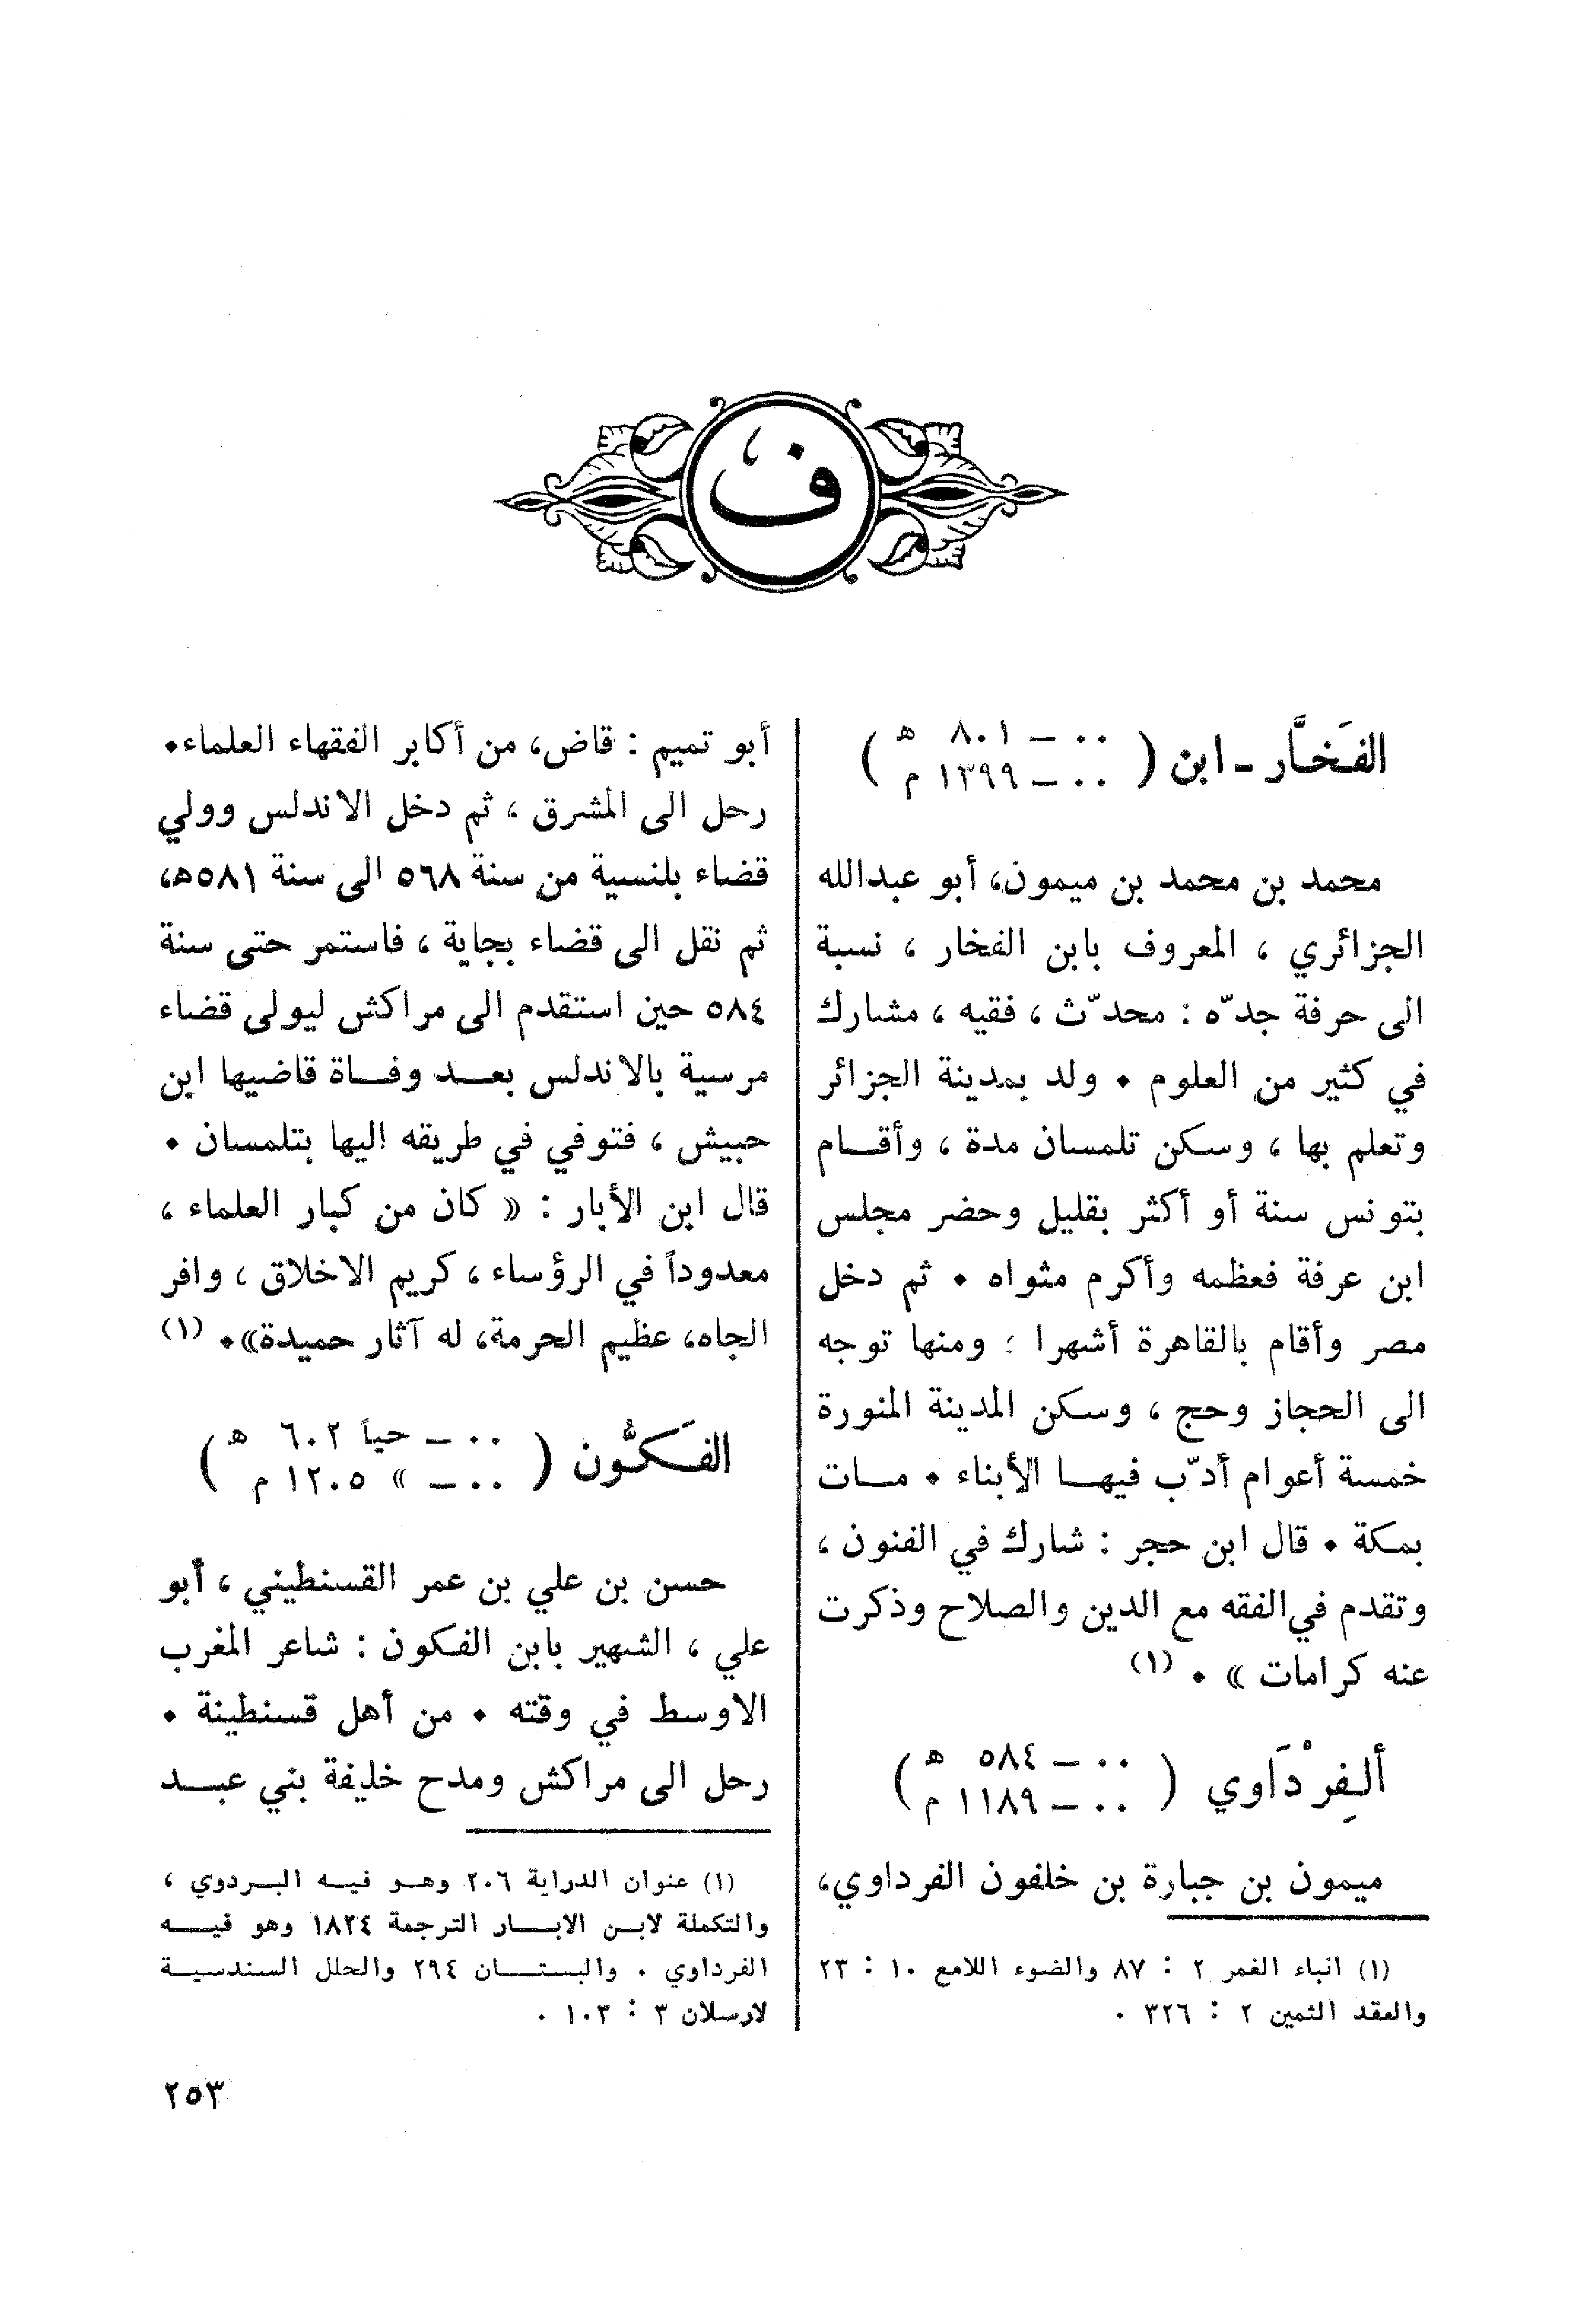 ف
الفَخَّار ـ ابن ( ٠٠ ـ ٨٠١ هـ
٠٠ ـ ١٣٩٩ م )
محمد بن محمد بن ميمون، أبو عبدالله
الجزائري ، المعروف بابن الفخار ، نسبة
الى حرفة جدّه : محدّث ، فقيه ، مشارك
في كثير من العلوم • ولد بمدينة الجزائر
وتعلم بها ، وسكن تلمسان مدة ، وأقـــام
بتونس سنة أو أكثر بقليل وحضر مجلس
ابن عرفة فعظمه وأكرم مثواه • ثم دخل
مصر وأقام بالقاهرة أشهرا ؛ ومنها توجه
الى الحجاز وحج ، وسكن المدينة المنورة
خمسة أعوام أدّب فيهـــا الأبناء • مـــات
بمكة • قال ابن حجر : شارك في الفنون ،
وتقدم في الفقه مع الدين والصلاح وذكرت
عنه كرامات » • (١)
ألفِرْدَاوي ( ٠٠ ـ ٥٨٤ هـ
٠٠ ـ ١١٨٩ م )
ميمون بن جبارة بن خلفون الفرداوي،
(١) انباء الغمر ٢ : ٨٧ والضوء اللامع ١٠ : ٢٣
والعقد الثمين ٢ : ٣٢٦ .
أبو تميم : قاض، من أكابر الفقهاء العلماء•
رحل الى المشرق ، ثم دخل الاندلس وولي
قضاء بلنسية من سنة ٥٦٨ الى سنة ٥٨١هـ،
ثم نقل الى قضاء بجاية ، فاستمر حتى سنة
٥٨٤ حين استقدم الى مراكش ليولى قضاء
مرسية بالاندلس بعـــد وفـــاة قاضيها ابن
حبيش ، فتوفي في طريقه اليها بتلمسان •
قال ابن الأبار : « كان من كبار العلماء ،
معدوداً في الرؤساء ، كريم الاخلاق ، وافر
الجاه، عظيم الحرمة، له آثار حميدة»• (١)
الفَـكُّون ( ٠٠ ـ حياً ٦٠٢ هـ
٠٠ ـ » ١٢٠٥ م )
حسن بن علي بن عمر القسنطيني ، أبو
علي ، الشهير بابن الفكون : شاعر المغرب
الاوسط في وقته • من أهل قسنطينة •
رحل الى مراكش ومدح خليفة بني عبـــد
(١) عنوان الدراية ٢٠٦ وهـــو فيـــه البـــردوي ،
والتكملة لابـــن الابـــار الترجمة ١٨٢٤ وهو فيـــه
الفرداوي . والبستـــان ٢٩٤ والحلل السندسيـــة
لارسلان ٣ : ١٠٣ .
٢٥٣